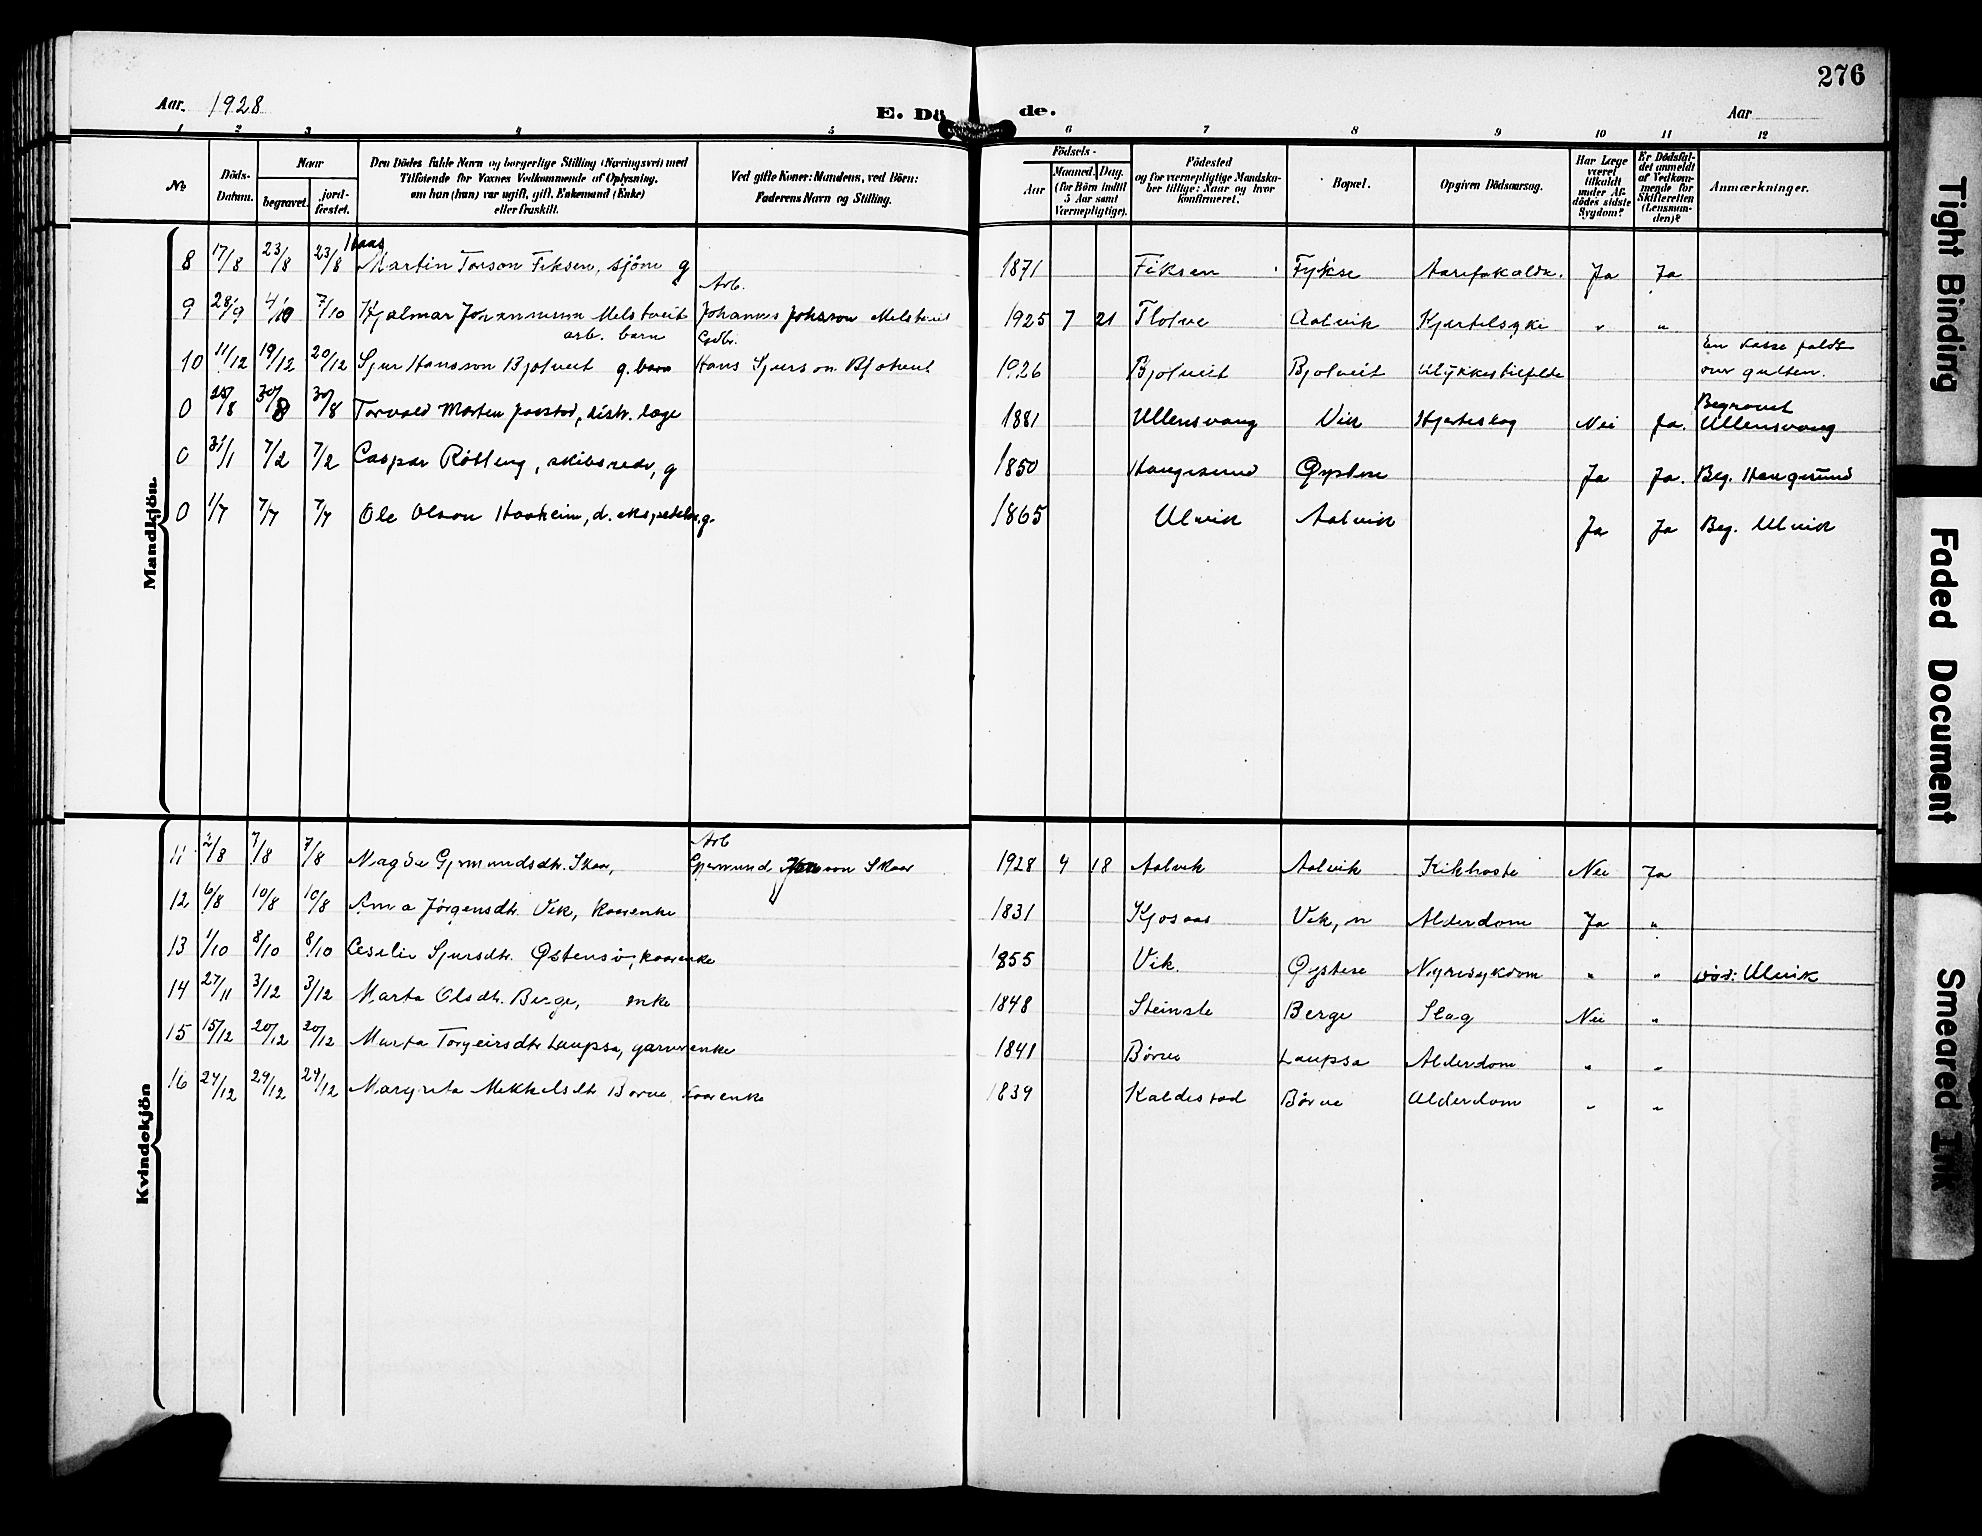 276
Aar. 1928
E. Dö de.
Aar
1 2 3 4 5 6 7 8 9 10 11 12
No.
Döds-Datum.
Naar
begravet.
jord-fæstet.
Den Dödes fulde Navn og borgerlige Stilling (Næringsvei) med
Tilföiende for Voxnes Vedkommende af Oplysning,
om hun (han) var ugift, gift, Enkemand (Enke)
eller fraskilt.
Ved gifte Koner: Mandens, ved Börn:
Faderens Navn og Stilling.
Födsels-
Aar
Maaned. Dag.
(for Börn indtil
5 Aar samt
Værnepligtige).
Födested
og for værnepligtige Mandska-
ber tillige: Naar og hvor
konfirmeret.
Bopæl.
Opgiven Dödsaarsag.
Har Læge
været
tilkaldt
under Af-
dödes sidste
Sygdom?
Er Dödsfal-
det anmeldt
af Vedkom-
mende for
Skifteretten
(Lensman-
den)?
Anmærkninger.
Mandkjön.
8 17/8 23/8 23/8 Martin Torson Fiksen, sjöm g 1871 Fiksen Fykse Ja Ja
9 28/9 4/10 7/10 Hjalmar Johannessen Melstveit arb. barn Arb. Johannes Melstveit 1925 7 21 Flotve Aalvik Kjertelsyke " "
10 11/12 19/12 20/12 Sjur Hansson Bjotveit g.barn Gdbr. Hans Sjurson Bjotveit 1926 Bjotveit Bjotveit Ulykkestilfelde En kasse faldt over gutten.
0 25/8 30/8 30/8 Torvald Morten, distr. læge 1881 Ullensvang Vik Hjerteslag Nei Ja. Begravet Ullensvang
0 31/1 7/2 7/2 Caspar Rötting, skibsreder, g 1850 Haugesund Øystese Ja Ja. Beg. Haugesund
0 1/7 7/7 7/7 Ole Olson Haaheim, d. ekspeditör, g. 1865 Ulvik Aalvik Ja Ja Beg. Ulvik
Kvindekjön
11 2/8 7/8 7/8 Magda Gjermundsdtr. Skaar, Arb Gjermund Skaar 1928 4 18 Aalvik Aalvik Kikhoste Nei Ja
12 6/8 10/8 10/8 Anna Jørgensdtr. Vik, kaarenke 1831 Kjosaas Vik, n Alderdom Ja "
13 1/10 8/10 8/10 Ceselie Sjursdtr. Østensö, kaarenke 1855 Vik. Øystese Nyresykdom " " död: Ulvik
14 27/11 3/12 3/12 Marta Olsdtr. Berge, enke 1848 Steinstø Berge Slag Nei "
15 15/12 20/12 20/12 Marta Torgeirsdtr Laupsa, garverenke 1841 Børve Laupsa Alderdom " "
16 24/12 29/12 29/12 Margreta Mikkelsdtr Børve kaarenke 1839 Kaldestad Børve Alderdom " "
Tight Binding
Faded Document
Smeared Ink